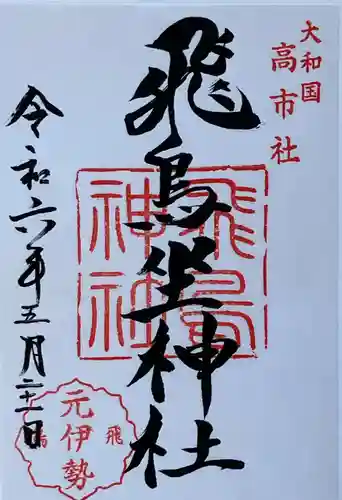 大和国
高市社
飛鳥坐神社
飛鳥
神社
令和六年五月二十一日
元伊勢
飛鳥